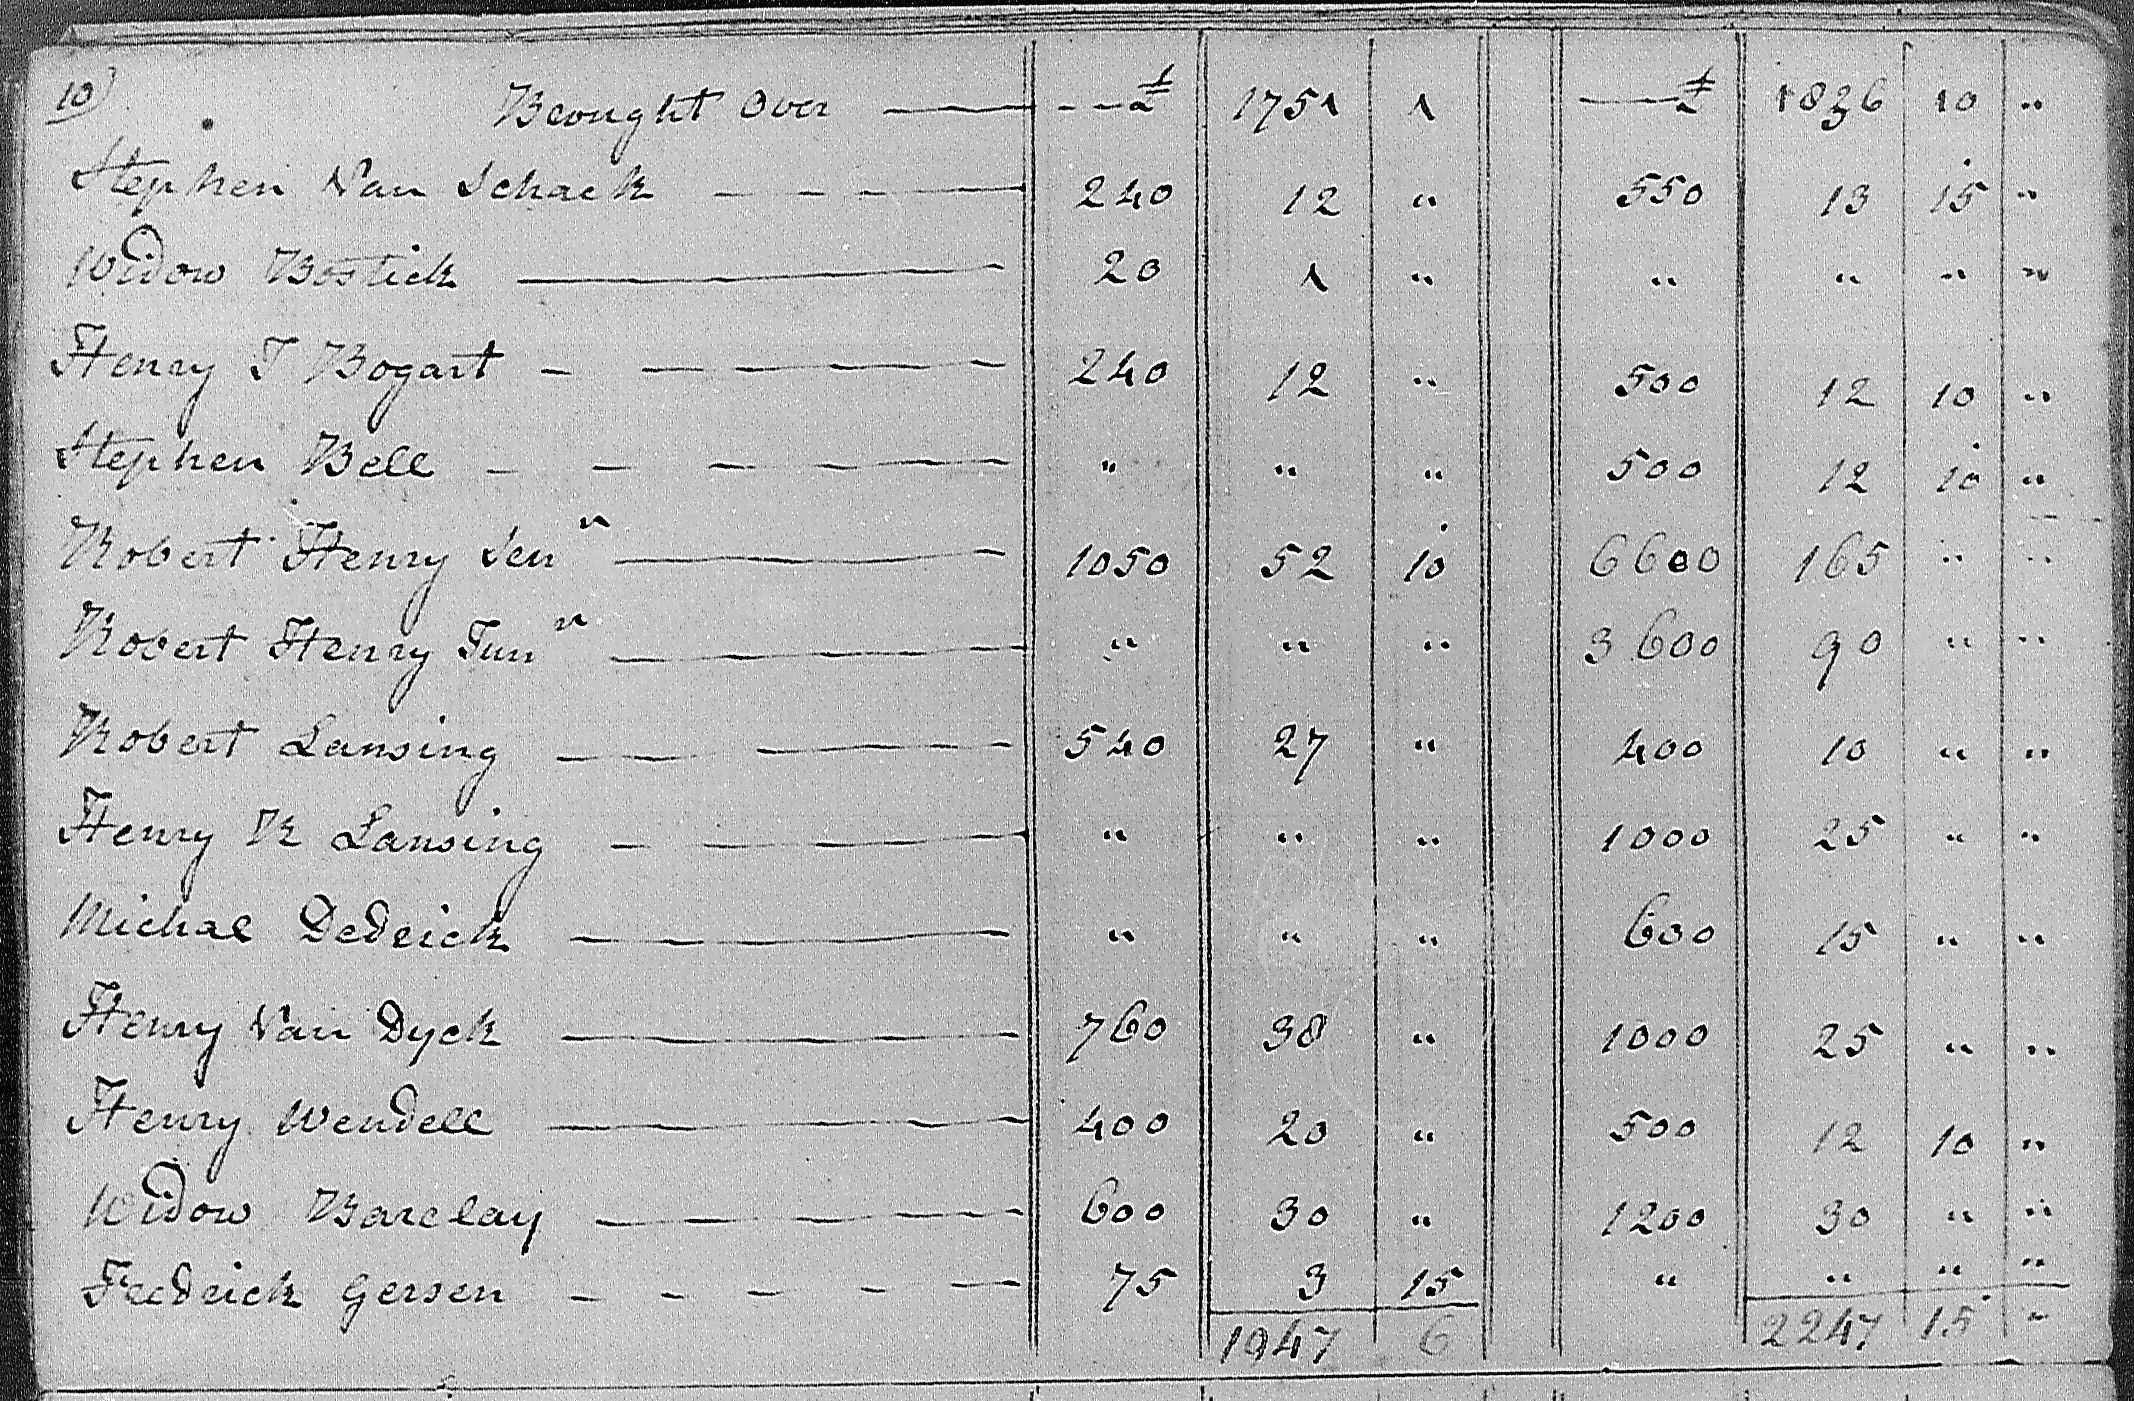 10)
Brought Over — £ 1751 1 — £ 1836 10 "
Stephen Van Schack — 240 12 " 550 13 15 "
Widow Bostick — 20 1 " " " " "
Henry T Bogart — 240 12 " 500 12 10 "
Stephen Bell — " " " 500 12 10 "
Robert Henry Senr — 1050 52 10 6600 165 " "
Robert Henry Junr — " " " 3600 90 " "
Robert Lansing — 540 27 " 400 10 " "
Henry R Lansing — " " " 1000 25 " "
Michal Dedrick — " " " 600 15 " "
Henry Van Dyck — 760 38 " 1000 25 " "
Henry Wendell — 400 20 " 500 12 10 "
Widow Barclay — 600 30 " 1200 30 " "
Fredrick Gersen — 75 3 15 " " " "
1947 6 2247 15 "